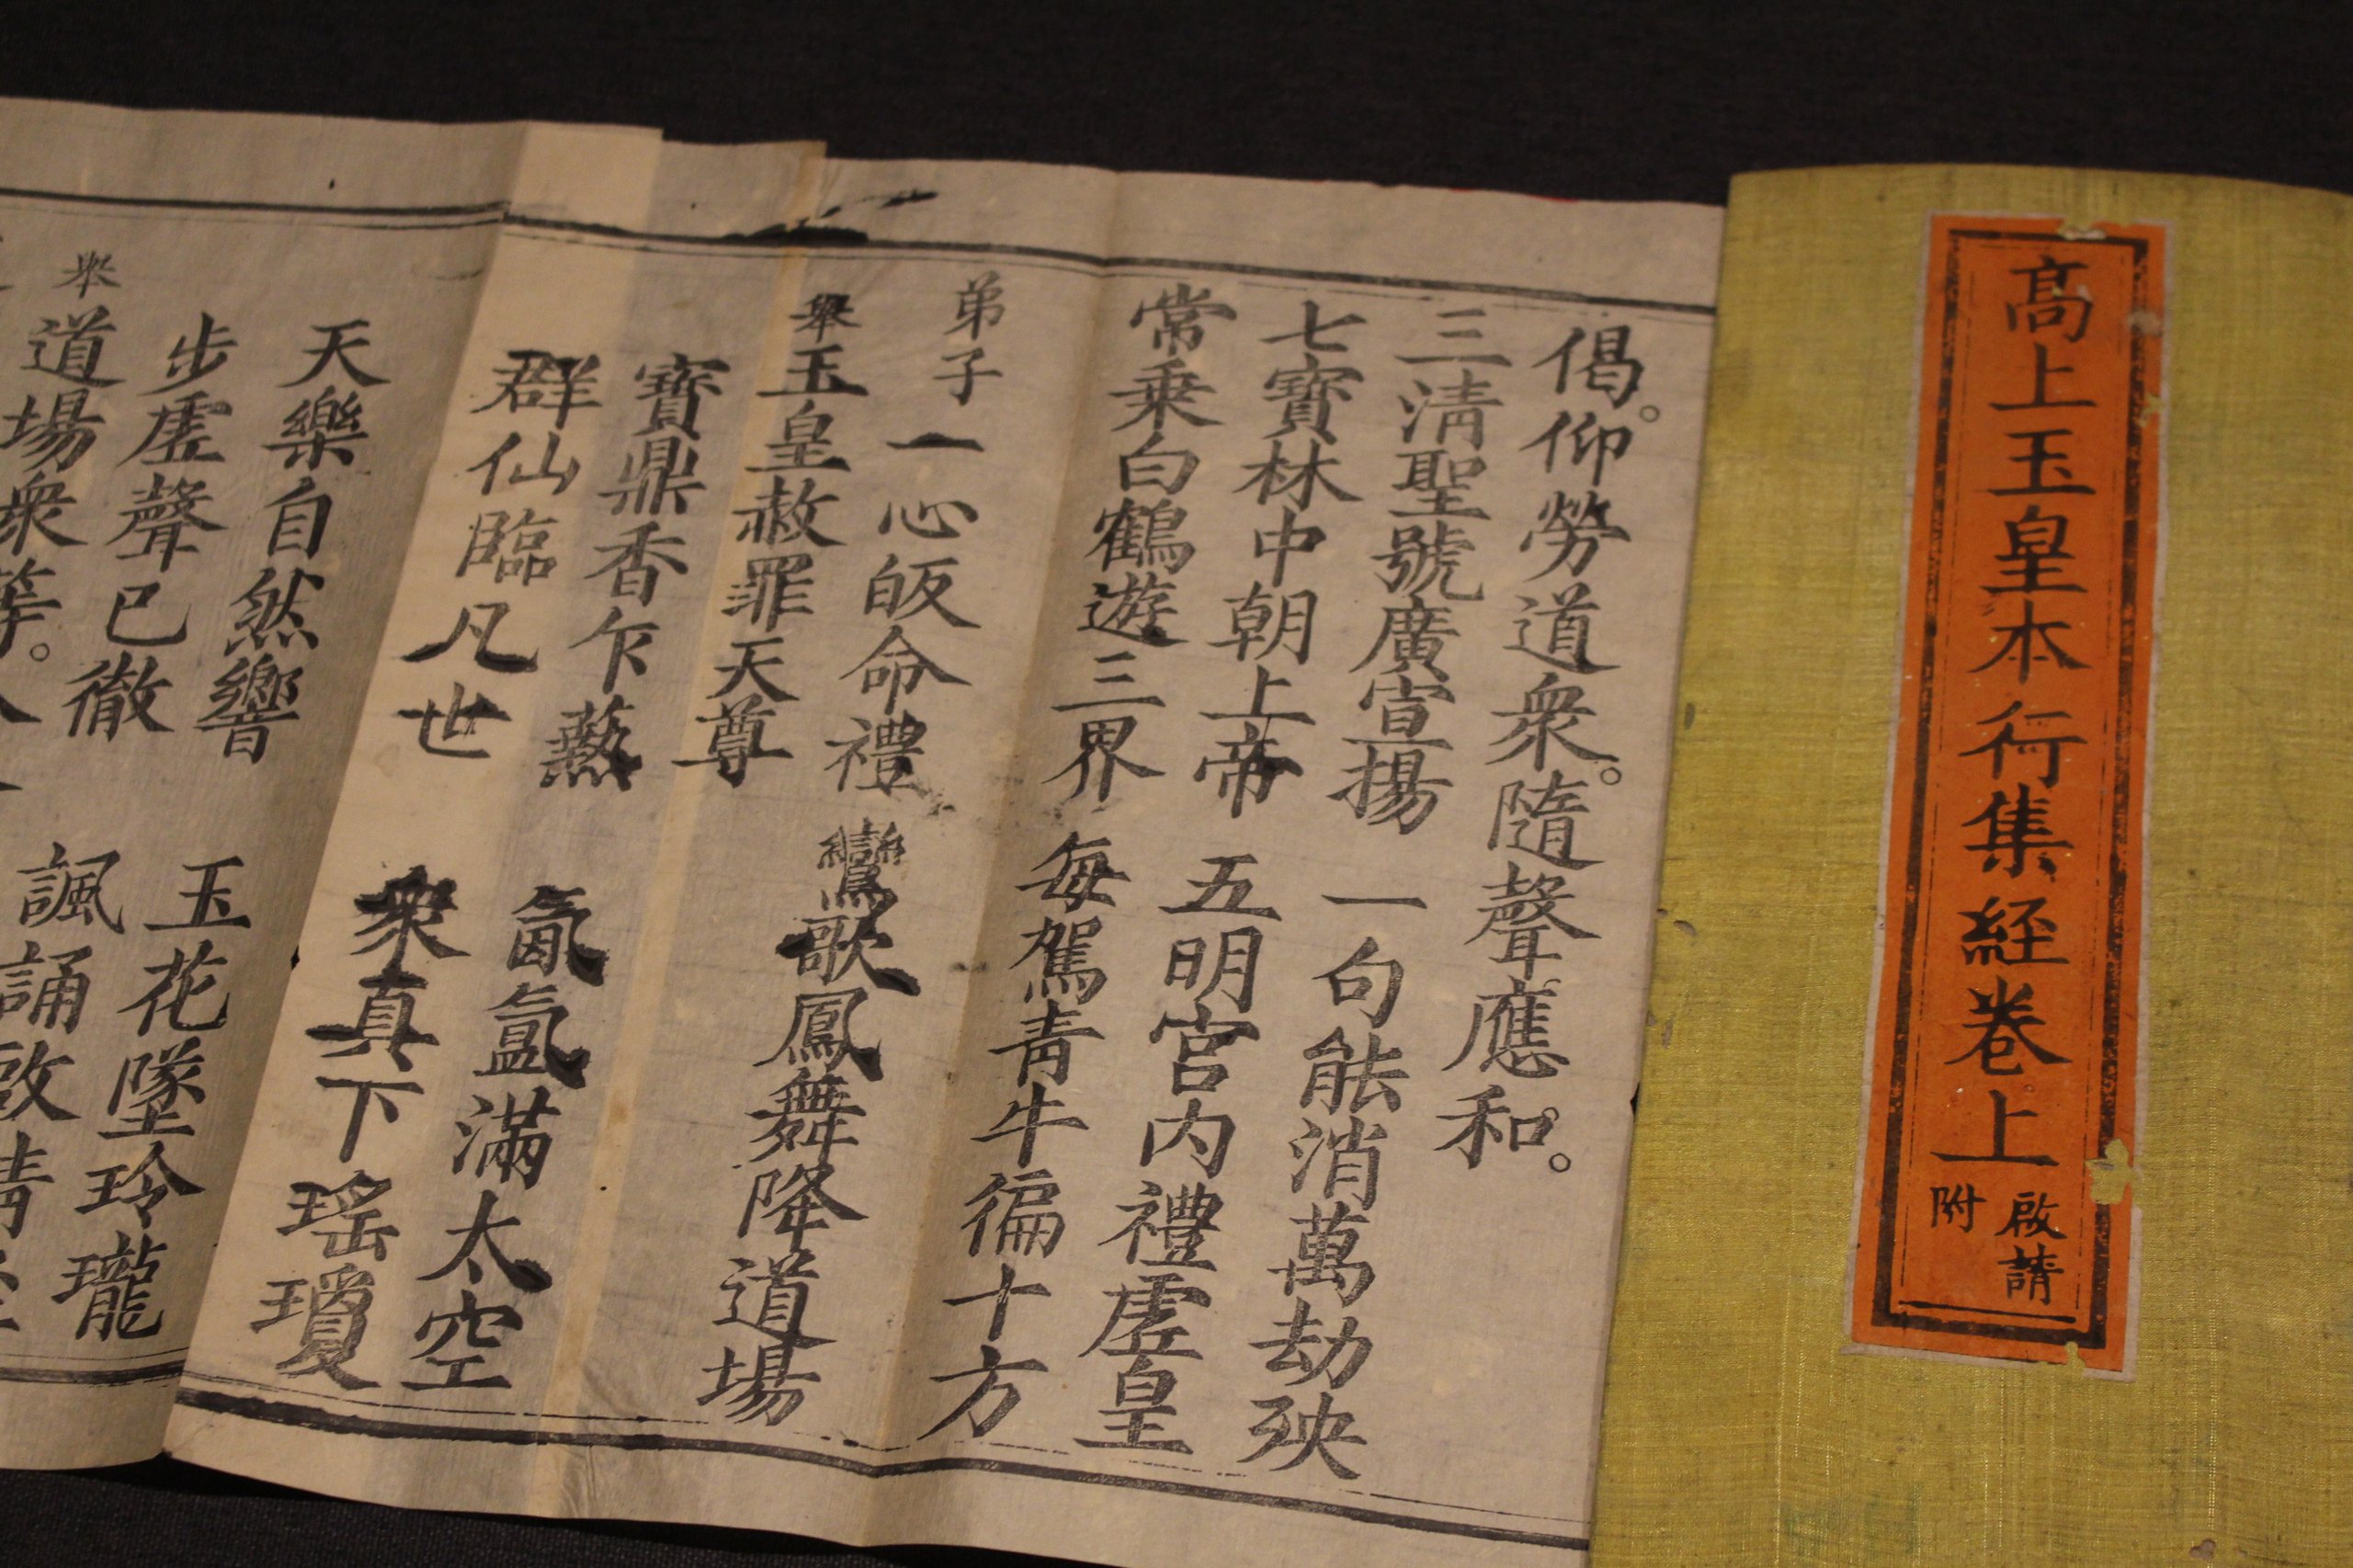 高上玉皇本行集経卷上
啟請
附
偈。仰勞道衆。隨聲應和。
三清聖號廣宣揚 一句能消萬劫殃
七寶林中朝上帝 五明宮内禮虛皇
常乗白鶴遊三界 每駕青牛徧十方
弟子一心皈命禮 鸞歌鳳舞降道場
舉玉皇赦罪天尊
寶鼎香乍爇 氤氳滿太空
群仙臨凡世 衆真下瑶瓊
天樂自然響 玉花墜玲瓏
步虛聲已徹 諷誦啟請
舉道場衆等。